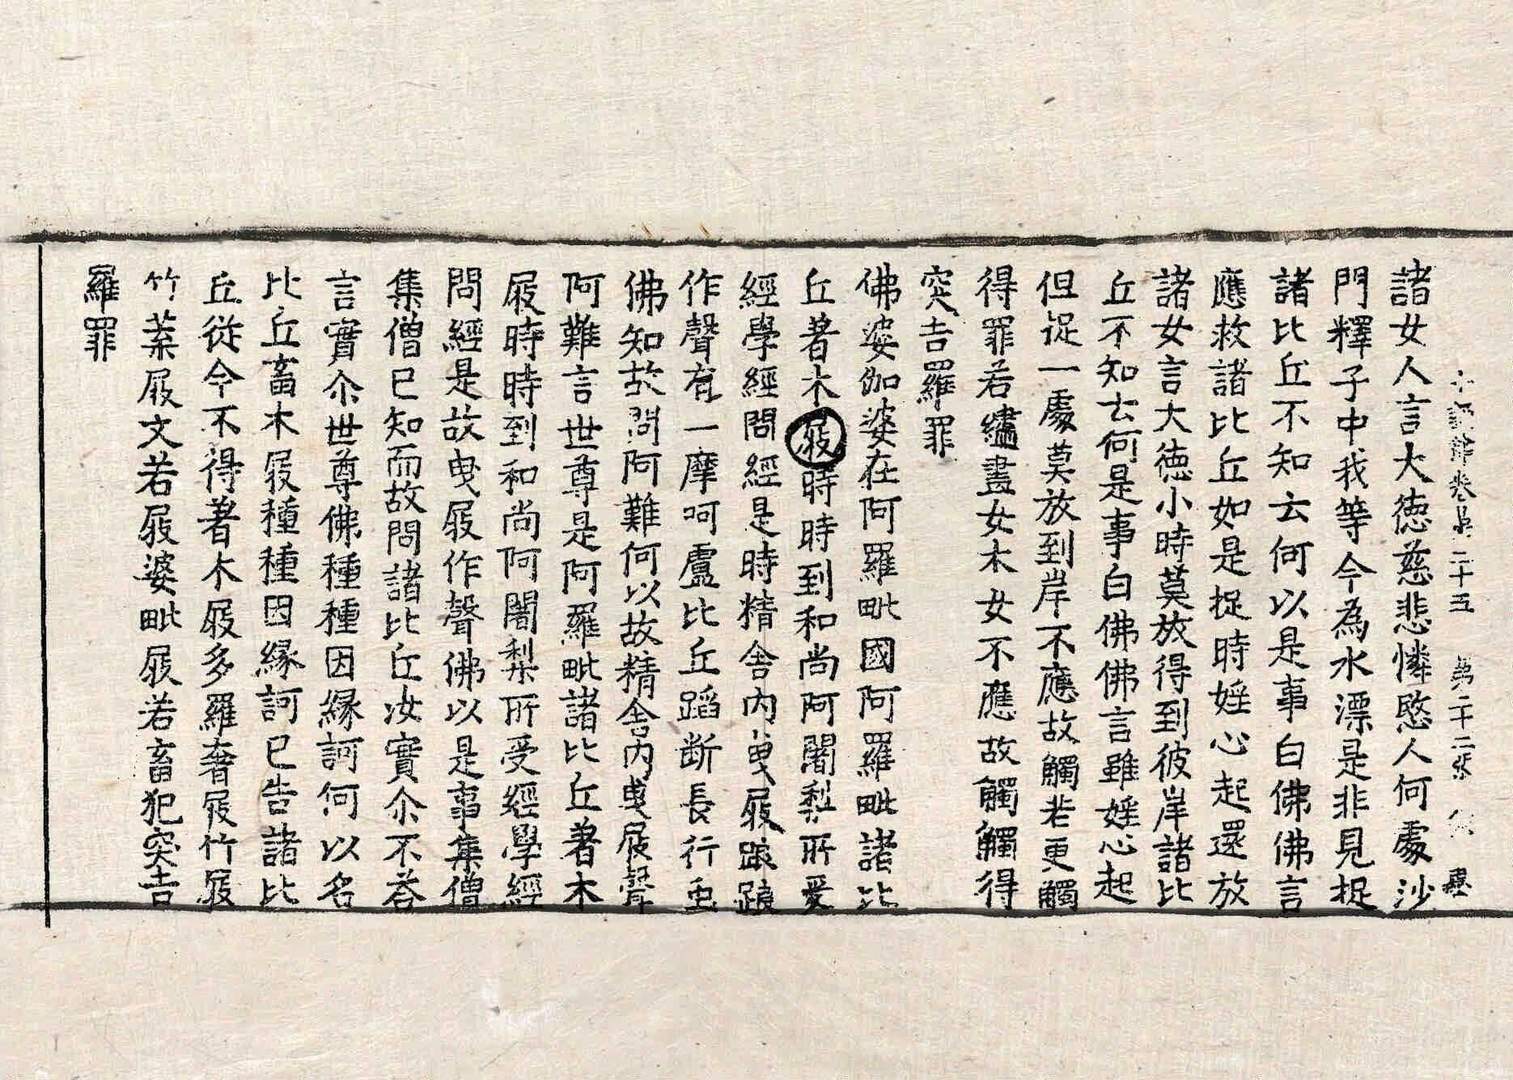 十誦律卷第二十五 第二十二張
諸女人言大德慈悲憐愍人何處沙
門釋子中我等今為水漂是非見捉
諸比丘不知云何以是事白佛佛言
應救諸比丘如是捉時婬心起還放
諸女言大德小時莫放得到彼岸諸比
丘不知云何是事白佛佛言雖婬心起
但捉一處莫放到岸不應故觸若更觸
得罪若繡畫女木女不應故觸觸得
突吉羅罪
佛婆伽婆在阿羅毗國阿羅毗諸比
丘著木屐時時到和尚阿闍梨所受
經學經問經是時精舍內曳屐踉踉
作聲有一摩呵盧比丘蹈斷長行虫
佛知故問阿難何以故精舍內曳屐聲
阿難言世尊是阿羅毗諸比丘著木
屐時時到和尚阿闍梨所受經學經
問經是故曳屐作聲佛以是事集僧
集僧已知而故問諸比丘汝實尒不荅
言實尒世尊佛種種因緣訶何以名
比丘畜木屐種種因緣訶已告諸比
丘從今不得著木屐多羅奢屐竹屐
竹葉屐文若屐婆毗屐若畜犯突吉
羅罪